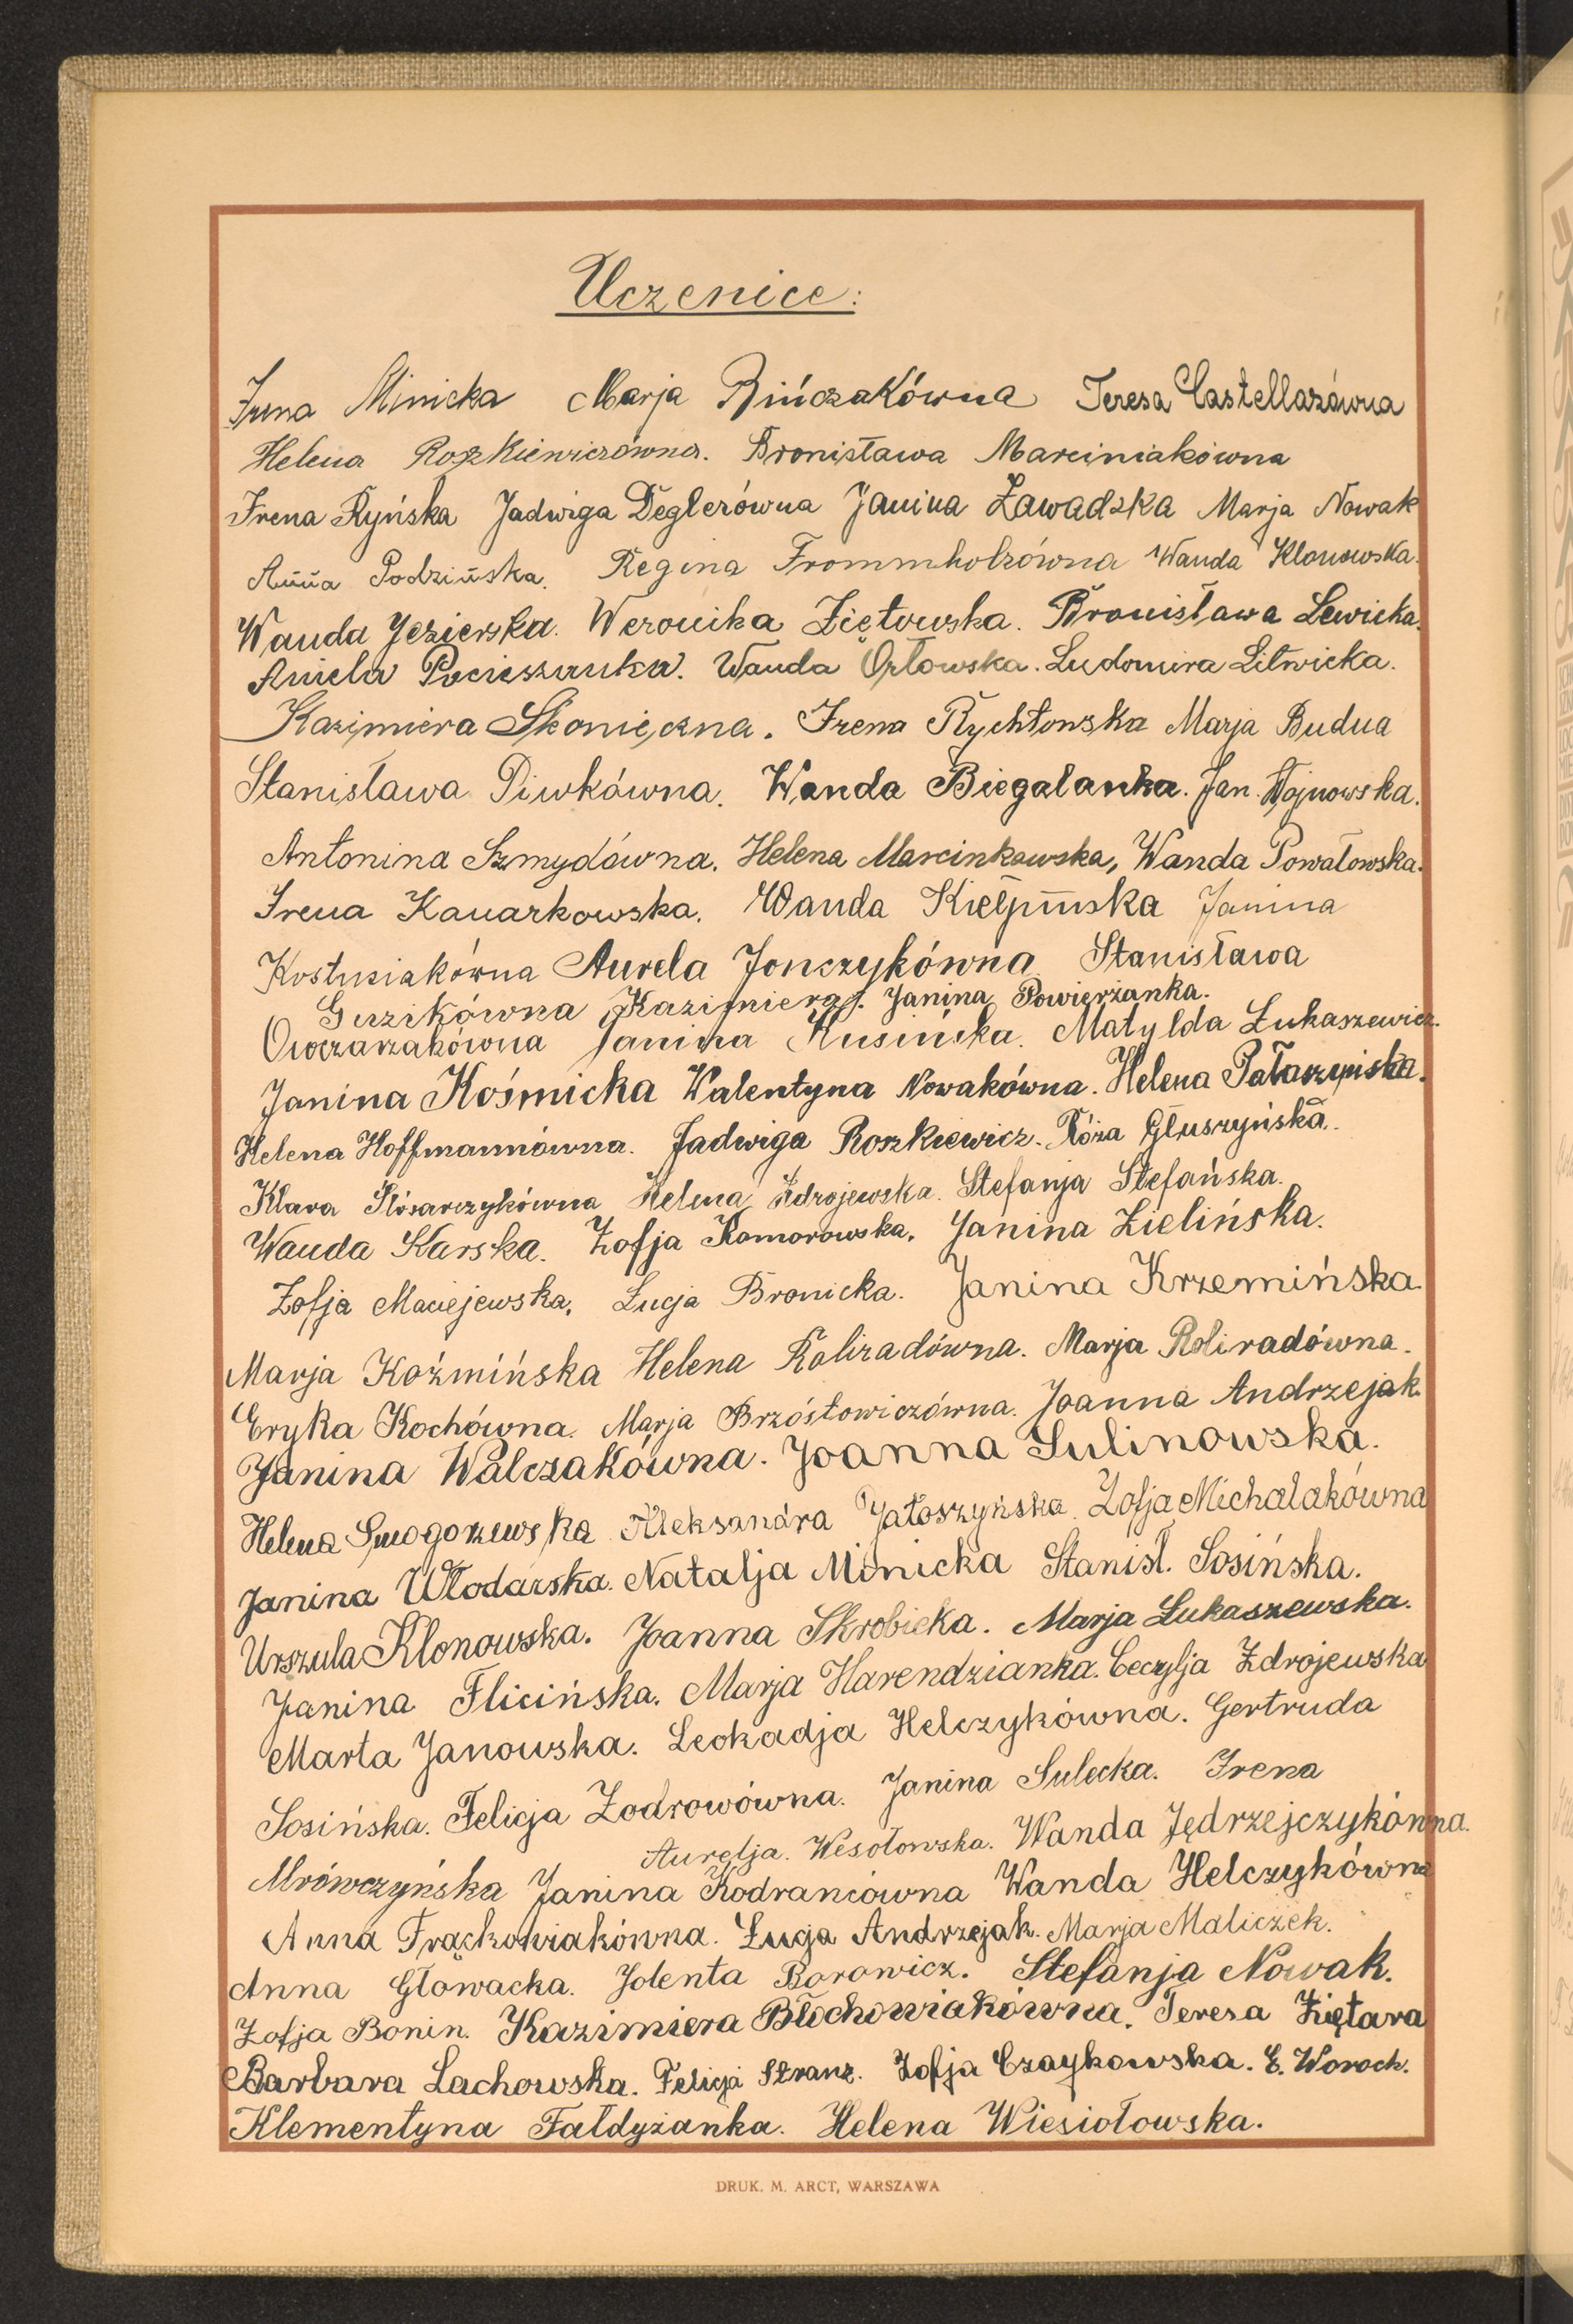 Uczenice:
Irena Minicka Marja Bińczakówna Teresa Castellazówna
Helena Roszkiewiczówna. Bronisława Marciniakówna
Irena Ryńska Jadwiga Deglerówna Janina Zawadzka Marja Nowak
Anna Podzińska. Regina Frommholzówna Wanda Klonowska.
Wanda Jezierska. Weronika Ziętowska. Bronisława Lewicka.
Aniela Wanda Orłowska. Ludomira Litwicka.
Kazimiera Skonieczna. Irena Rychłowska Marja Budua
Stanisława Piwkówna. Wanda Biegalanka. Jan. Wojnowska.
Antonina Szmydówna. Helena Marcinkowska, Wanda Powałowska.
Irena Kanarkowska. Wanda Kiełpińska Janina
Kostusiakówna Aurela Jonczykówna Stanisława
Guzikówna Kazimiera. Janina Powierżanka.
Owczarzakówna Janina Kusińska. Matylda Łukaszewicz.
Janina Kośmicka Walentyna Nowakówna. Helena Pałaszyńska.
Helena Hoffmannówna. Jadwiga Roszkiewicz. Róża Głuszyńska.
Klara Ślósarczykówna Helena Zdrojewska. Stefanja Stefańska.
Wanda Karska. Zofja Komorowska. Janina Zielińska.
Zofja Maciejewska. Łucja Bronicka. Janina Krzemińska
Marja Koźmińska Helena Roliradówna. Marja Roliradówna.
Eryka Kochówna. Marja Brzóstowiczówna. Joanna Andrzejak.
Janina Walczakówna. Joanna Sulinowska.
Helena Smogorzewska Aleksandra Jałoszyńska. Zofja Michalakówna
Janina Włodarska. Natalja Minicka Stanisł. Sosińska.
Urszula Klonowska. Joanna Skrobicka. Marja Łukaszewska.
Janina Flicińska. Marja Harendzianka. Cecylja Zdrojewska
Marta Janowska. Leokadja Helczykówna. Gertruda
Sosińska. Felicja Zodrowówna. Janina Sulecka. Irena
Aurelja. Wesołowska. Wanda Jędrzejczykówna.
Mrówczyńska Janina Kodrancówna Wanda Helczykówna
Anna Frąckowiakówna. Łucja Andrzejak. Marja Maliczek.
Anna Głowacka. Jolenta Borowicz. Stefanja Nowak.
Zofja Bonin. Kazimiera Błochowiakówna. Teresa Ziętara
Barbara Lachowska. Felicja Stranz. Zofja Czaykowska. E. Woroch.
Klementyna Fałdyżanka. Helena Wiesiołowska.
DRUK. M. ARCT, WARSZAWA